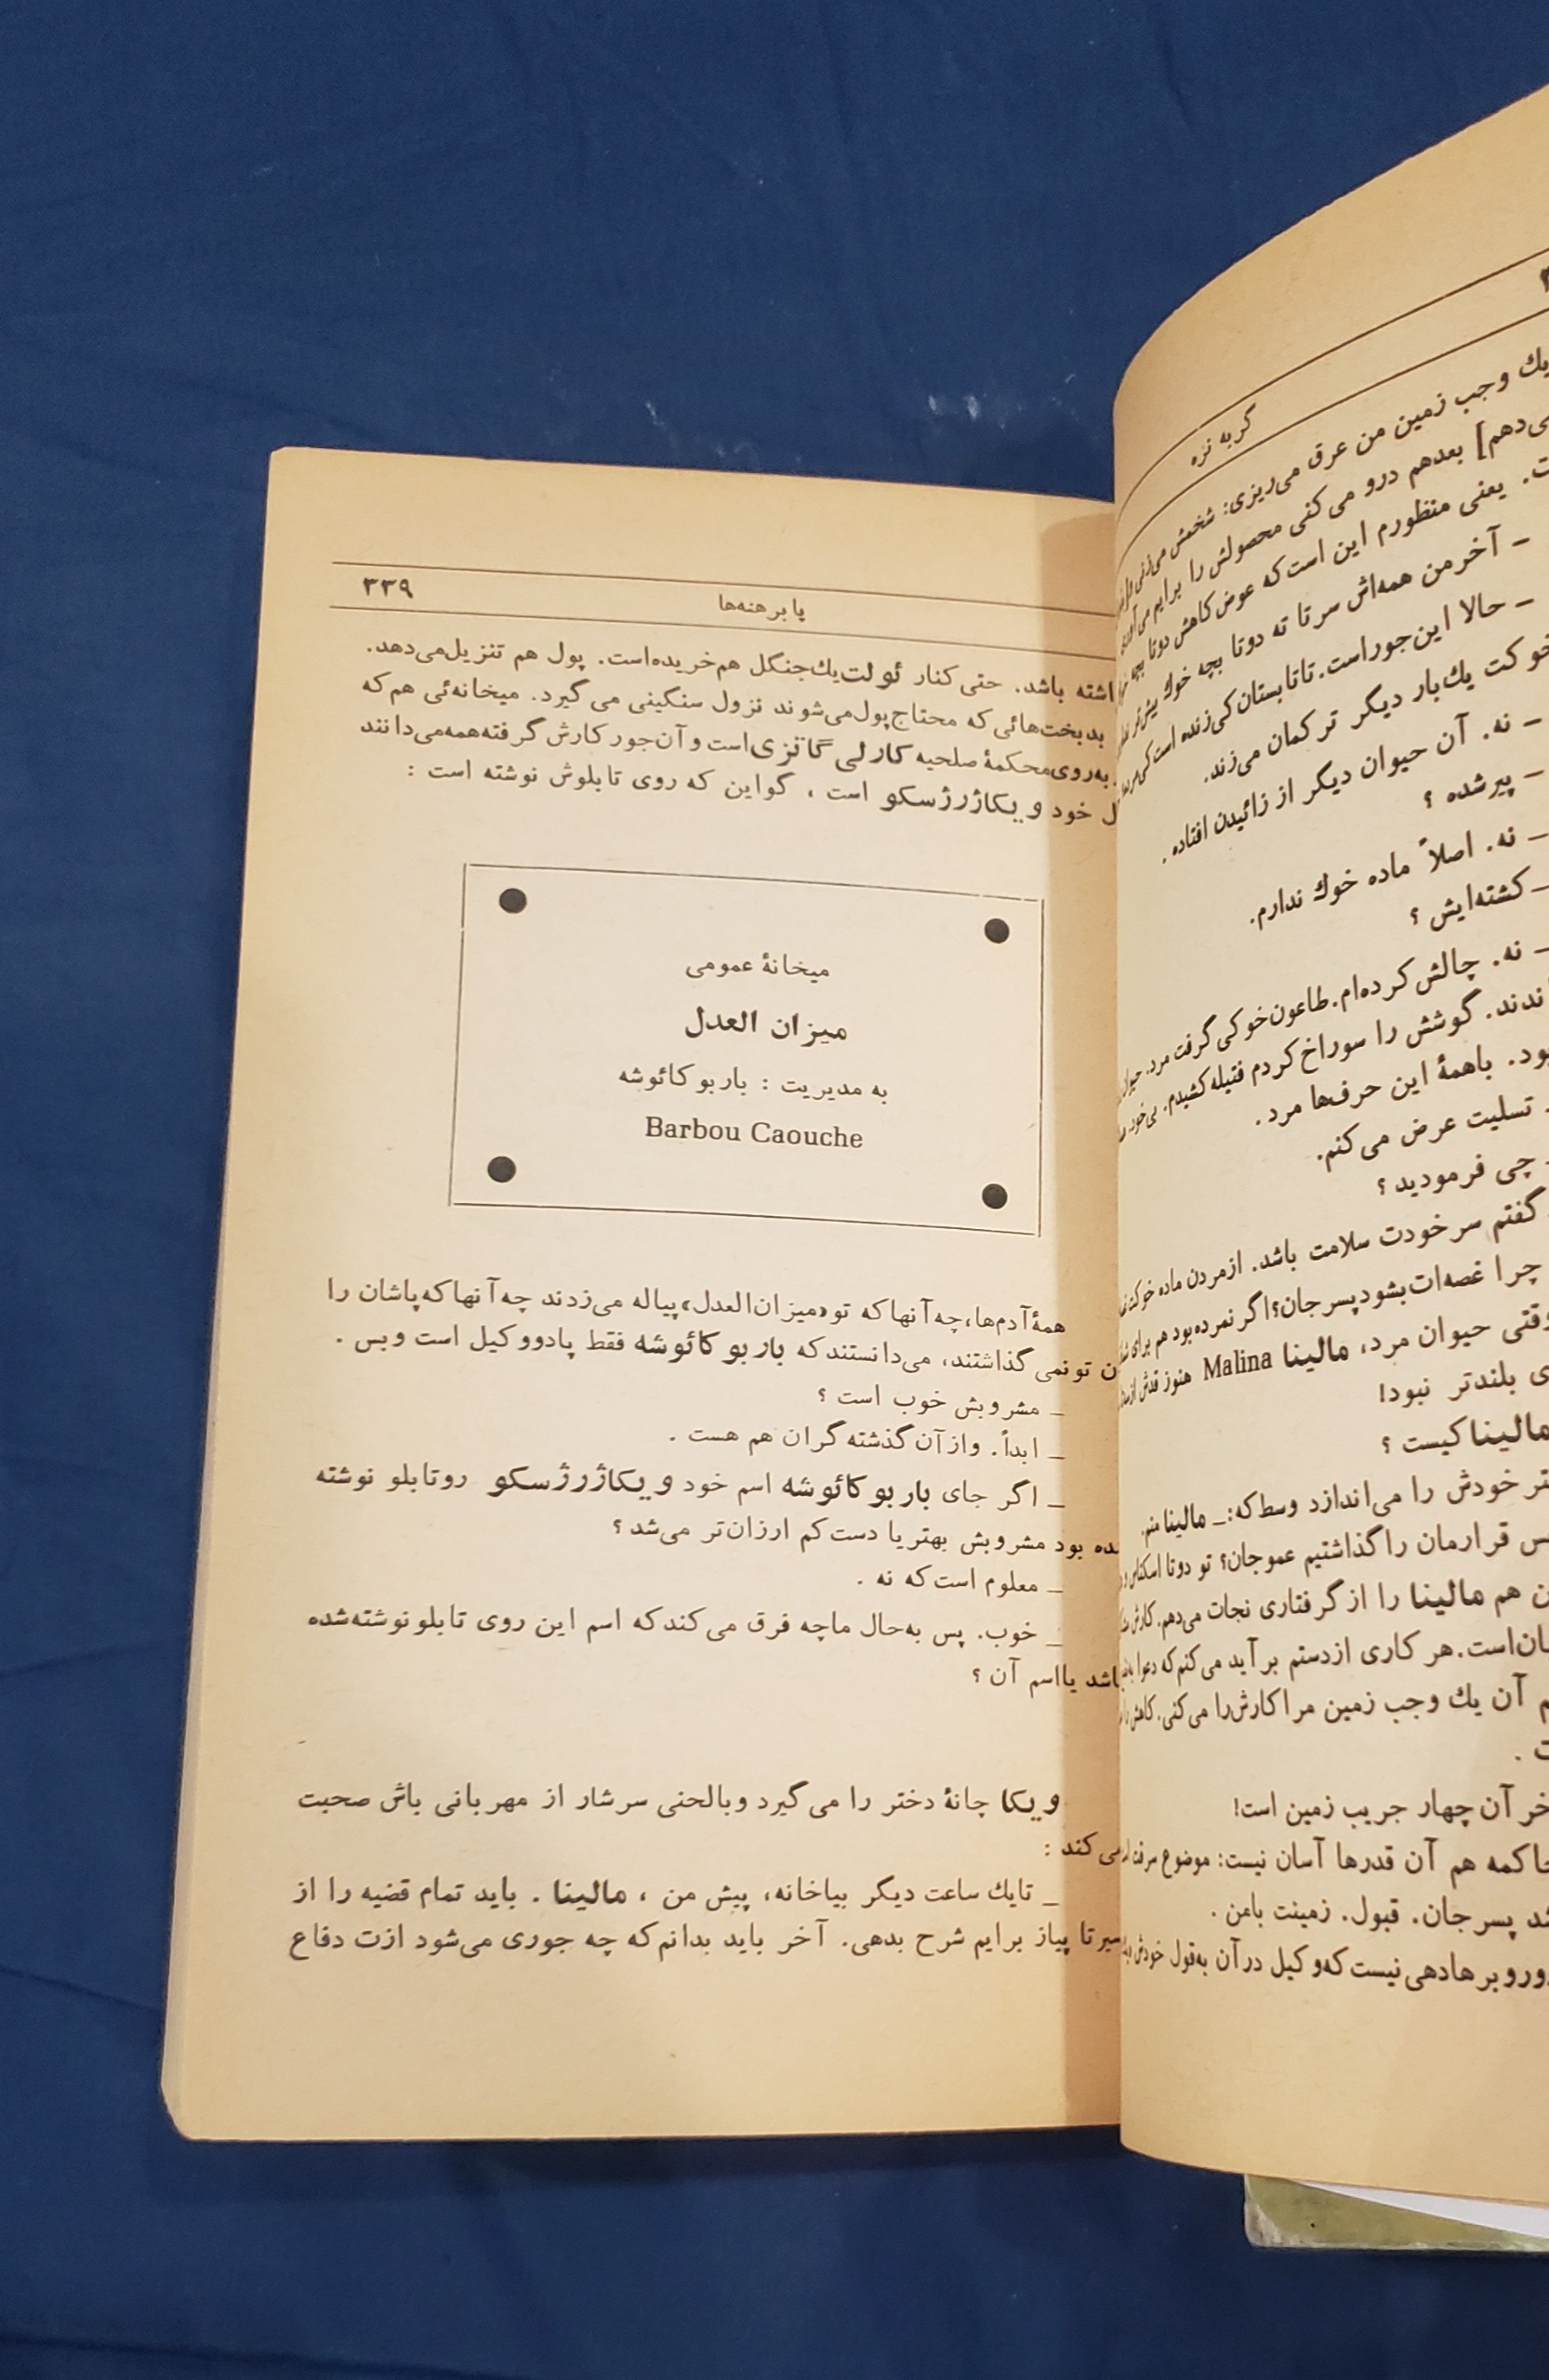 گربه نره
یك وجب زمین من عرق می‌ریزی: شخمش می‌زنی
ی‌دهم] بعدهم درو می‌کنی محصولش را برایم می‌آوری
ت. یعنی منظورم این است که عوض کاهش دوتا بچه
– آخر من همه‌اش سر تا ته دوتا بچه خوك بیش‌تر
– حالا این‌جور است. تا تابستان کی زنده است کی
خوکت یك‌بار دیگر ترکمان می‌زند.
– نه. آن حیوان دیگر از زائیدن افتاده .
– پیر شده ؟
– نه. اصلاً ماده خوك ندارم.
– کشته‌ایش ؟
– نه. چالش کرده‌ام. طاعون خوکی گرفت مرد.
ندند. گوشش را سوراخ کردم فتیله کشیدم. بی‌خود
ود. باهمهٔ این حرف‌ها مرد .
تسلیت عرض می‌کنم.
چی فرمودید ؟
گفتم سر خودت سلامت باشد. از مردن ماده خوکت
چرا غصه‌ات بشود پسرجان؟ اگر نمرده بود هم برای
وقتی حیوان مرد، مالینا Malina هنوز قدش از
ی بلندتر نبود!
مالینا کیست ؟
تر خودش را می‌اندازد وسط که: – مالینا منم.
س قرارمان را گذاشتیم عموجان؟ تو دوتا اسکناس
ن هم مالینا را از گرفتاری نجات می‌دهم.
ان است. هر کاری از دستم بر آید می‌کنم که دعوا
م آن یك وجب زمین مرا کارش را می‌کنی. کاهش
ت .
خر آن چهار جریب زمین است!
حاکمه هم آن قدرها آسان نیست: موضوع سرقت
شد پسرجان. قبول. زمینت بامن .
دوروبرها دهی نیست که وکیل در آن به‌قول خودش
پا برهنه‌ها
۳۳۹
اشته باشد. حتی کنار ئولت یك جنگل هم خریده است. پول هم تنزیل می‌دهد.
بدبخت‌هائی که محتاج پول می‌شوند نزول سنگینی می گیرد. میخانه‌ئی هم که
به‌روی محکمهٔ صلحیه کارلی گانزی است و آن‌جور کارش گرفته همه می‌دانند
ل خود ویکاژرژسکو است ، گو این که روی تابلوش نوشته است :
میخانهٔ عمومی
میزان العدل
به مدیریت : باربو کائوشه
Barbou Caouche
همهٔ آدم‌ها، چه آنها که تو «میزان‌العدل» پیاله می‌زدند چه آنها که پاشان را
ن تو نمی گذاشتند، می‌دانستند که باربو کائوشه فقط پادوو کیل است و بس .
– مشروبش خوب است ؟
– ابداً. واز آن گذشته گران هم هست .
– اگر جای باربو کائوشه اسم خود ویکاژرژسکو روتابلو نوشته
شده بود مشروبش بهتر یا دست کم ارزان‌تر می‌شد ؟
– معلوم است که نه .
– خوب. پس به‌حال ماچه فرق می کند که اسم این روی تابلو نوشته شده
باشد یا اسم آن ؟
ویکا چانهٔ دختر را می گیرد وبالحنی سرشار از مهربانی باش صحبت
می کند :
– تایك ساعت دیگر بیاخانه، پیش من ، مالینا . باید تمام قضیه را از
سیر تا پیاز برایم شرح بدهی. آخر باید بدانم که چه جوری می‌شود ازت دفاع